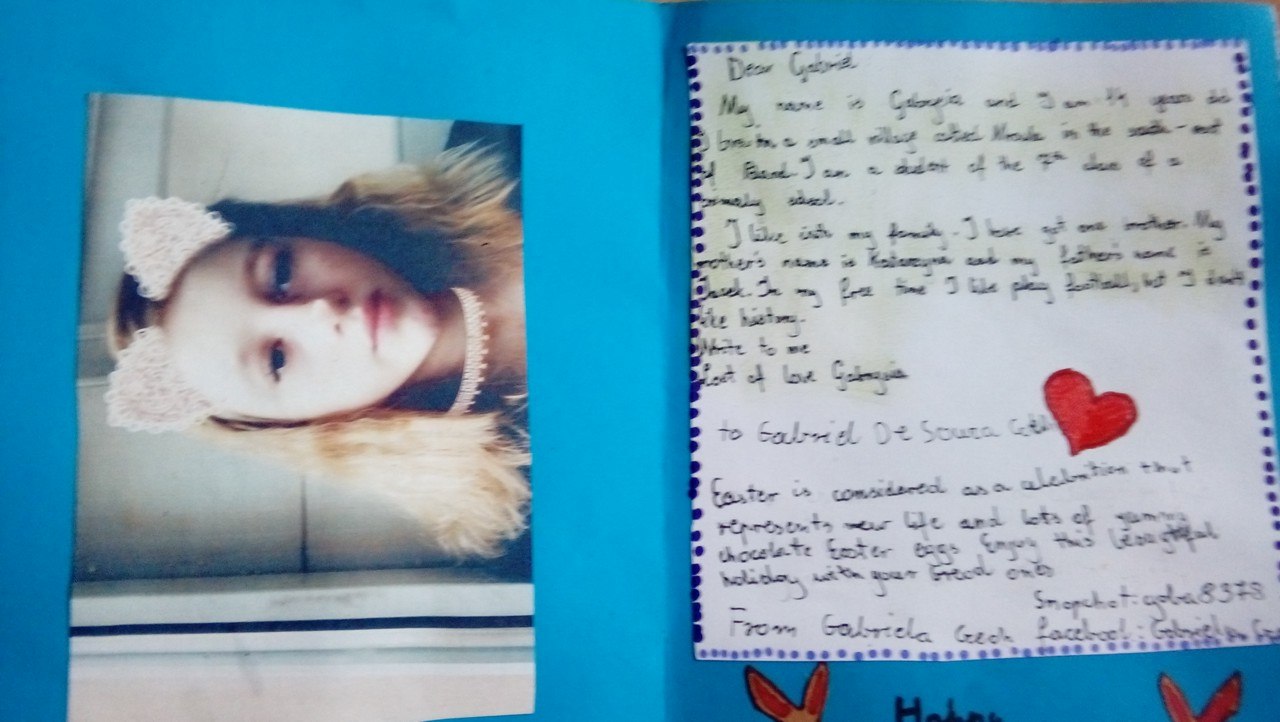 Dear Gabriel
My name is Gabrysia and I am 14 years old
I live in a small village called in the south-east
of Poland. I am a student of the 7th class of a
primary school.
I live with my family. I have got one mother. My
mother's name is Katarzyna and my father's name is
Jacek. In my free time I like play football, but I don't
like history.
Write to me
Loot of love Gabrysia
to Gabriel De Souza
Easter is considered as a celebrition that
represents new life and lots of yummy
chocolate Easter eggs. Enjoy this beautiful
holiday with your loved ones
Snapchat: gaba8378
From Gabriela facebook: Gabriela
Happy